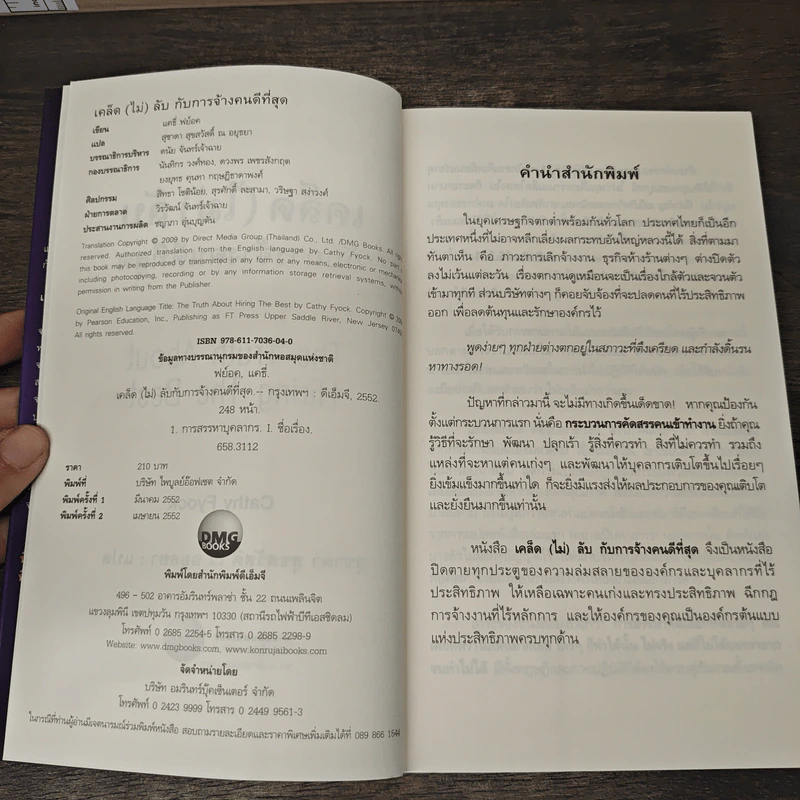 เคล็ด (ไม่) ลับ กับการจ้างคนดีที่สุด
เขียน แคธี่ ฟย็อค
แปล สุชาดา สุขสวัสดิ์ ณ อยุธยา
บรรณาธิการบริหาร ดนัย จันทร์เจ้าฉาย
กองบรรณาธิการ นันทิกร วงศ์ทอง, ดวงพร เพชรสังกฤต
ยงยุทธ คุนทา กฤษฎิธาดาพงศ์
ศิลปกรรม สีทธา โชติน้อย, สุรศักดิ์ ละสามา, วริษฐา สง่าวงศ์
ฝ่ายการตลาด วิรวัฒน์ จันทร์เจ้าฉาย
ประสานงานการผลิต ชญาภา อุ่นบุญตัน
Translation Copyright © 2009 by Direct Media Group (Thailand) Co., Ltd. /DMG Books. All
reserved. Authorized translation from the English language by Cathy Fyock. No part
this book may be reproduced or transmitted in any form or by any means, electronic or
including photocopying, recording or by any information storage retrieval systems,
permission in writing from the Publisher.
Original English Language Title: The Truth About Hiring The Best by Cathy Fyock. Copyright ©
by Pearson Education, Inc., Publishing as FT Press Upper Saddle River, New Jersey
All rights reserved.
ISBN 978-611-7036-04-0
ข้อมูลทางบรรณานุกรมของสำนักหอสมุดแห่งชาติ
ฟย์อค, แคธี่.
เคล็ด (ไม่) ลับกับการจ้างคนดีที่สุด.-- กรุงเทพฯ : ดีเอ็มจี, 2552.
248 หน้า.
1. การสรรหาบุคลากร. I. ชื่อเรื่อง.
658.3112
ราคา 210 บาท
พิมพ์ที่ บริษัท ไพบูลย์อ๊อฟเซต จำกัด
พิมพ์ครั้งที่ 1 มีนาคม 2552
พิมพ์ครั้งที่ 2 เมษายน 2552
DMG
BOOKS
พิมพ์โดยสำนักพิมพ์ดีเอ็มจี
496 - 502 อาคารอัมรินทร์พลาซ่า ชั้น 22 ถนนเพลินจิต
แขวงลุมพินี เขตปทุมวัน กรุงเทพฯ 10330 (สถานีรถไฟฟ้าบีทีเอสชิดลม)
โทรศัพท์ 0 2685 2254-5 โทรสาร 0 2685 2298-9
Website: www.dmgbooks.com, www.konrujaibooks.com
จัดจำหน่ายโดย
บริษัท อมรินทร์บุ๊คเซ็นเตอร์ จำกัด
โทรศัพท์ 0 2423 9999 โทรสาร 0 2449 9561-3
ในกรณีที่ท่านผู้อ่านมีเจตนารมณ์ร่วมพิมพ์หนังสือ สอบถามรายละเอียดและราคาพิเศษเพิ่มเติมได้ที่ 089 866 1544
คำนำสำนักพิมพ์
ในยุคเศรษฐกิจตกต่ำพร้อมกันทั่วโลก ประเทศไทยก็เป็นอีก
ประเทศหนึ่งที่ไม่อาจหลีกเลี่ยงผลกระทบอันใหญ่หลวงนี้ได้ สิ่งที่ตามมา
ทันตาเห็น คือ ภาวะการเลิกจ้างงาน ธุรกิจห้างร้านต่างๆ ต่างปิดตัว
ลงไม่เว้นแต่ละวัน เรื่องตกงานดูเหมือนจะเป็นเรื่องใกล้ตัวและจวนตัว
เข้ามาทุกที ส่วนบริษัทต่างๆ ก็คอยจับจ้องที่จะปลดคนที่ไร้ประสิทธิภาพ
ออก เพื่อลดต้นทุนและรักษาองค์กรไว้
พูดง่ายๆ ทุกฝ่ายต่างตกอยู่ในสภาวะที่ตึงเครียด และกำลังดิ้นรน
หาทางรอด!
ปัญหาที่กล่าวมานี้ จะไม่มีทางเกิดขึ้นเด็ดขาด! หากคุณป้องกัน
ตั้งแต่กระบวนการแรก นั่นคือ กระบวนการคัดสรรคนเข้าทำงาน ยิ่งถ้าคุณ
รู้วิธีที่จะรักษา พัฒนา ปลุกเร้า รู้สิ่งที่ควรทำ สิ่งที่ไม่ควรทำ รวมถึง
แหล่งที่จะหาแต่คนเก่งๆ และพัฒนาให้บุคลากรเติบโตขึ้นไปเรื่อยๆ
ยิ่งเข้มแข็งมากขึ้นเท่าใด ก็จะยิ่งมีแรงส่งให้ผลประกอบการของคุณเติบโต
และยั่งยืนมากขึ้นเท่านั้น
หนังสือ เคล็ด (ไม่) ลับ กับการจ้างคนดีที่สุด จึงเป็นหนังสือ
ปิดตายทุกประตูของความล่มสลายขององค์กรและบุคลากรที่ไร้
ประสิทธิภาพ ให้เหลือเฉพาะคนเก่งและทรงประสิทธิภาพ ฉีกกฎ
การจ้างงานที่ไร้หลักการ และให้องค์กรของคุณเป็นองค์กรต้นแบบ
แห่งประสิทธิภาพครบทุกด้าน